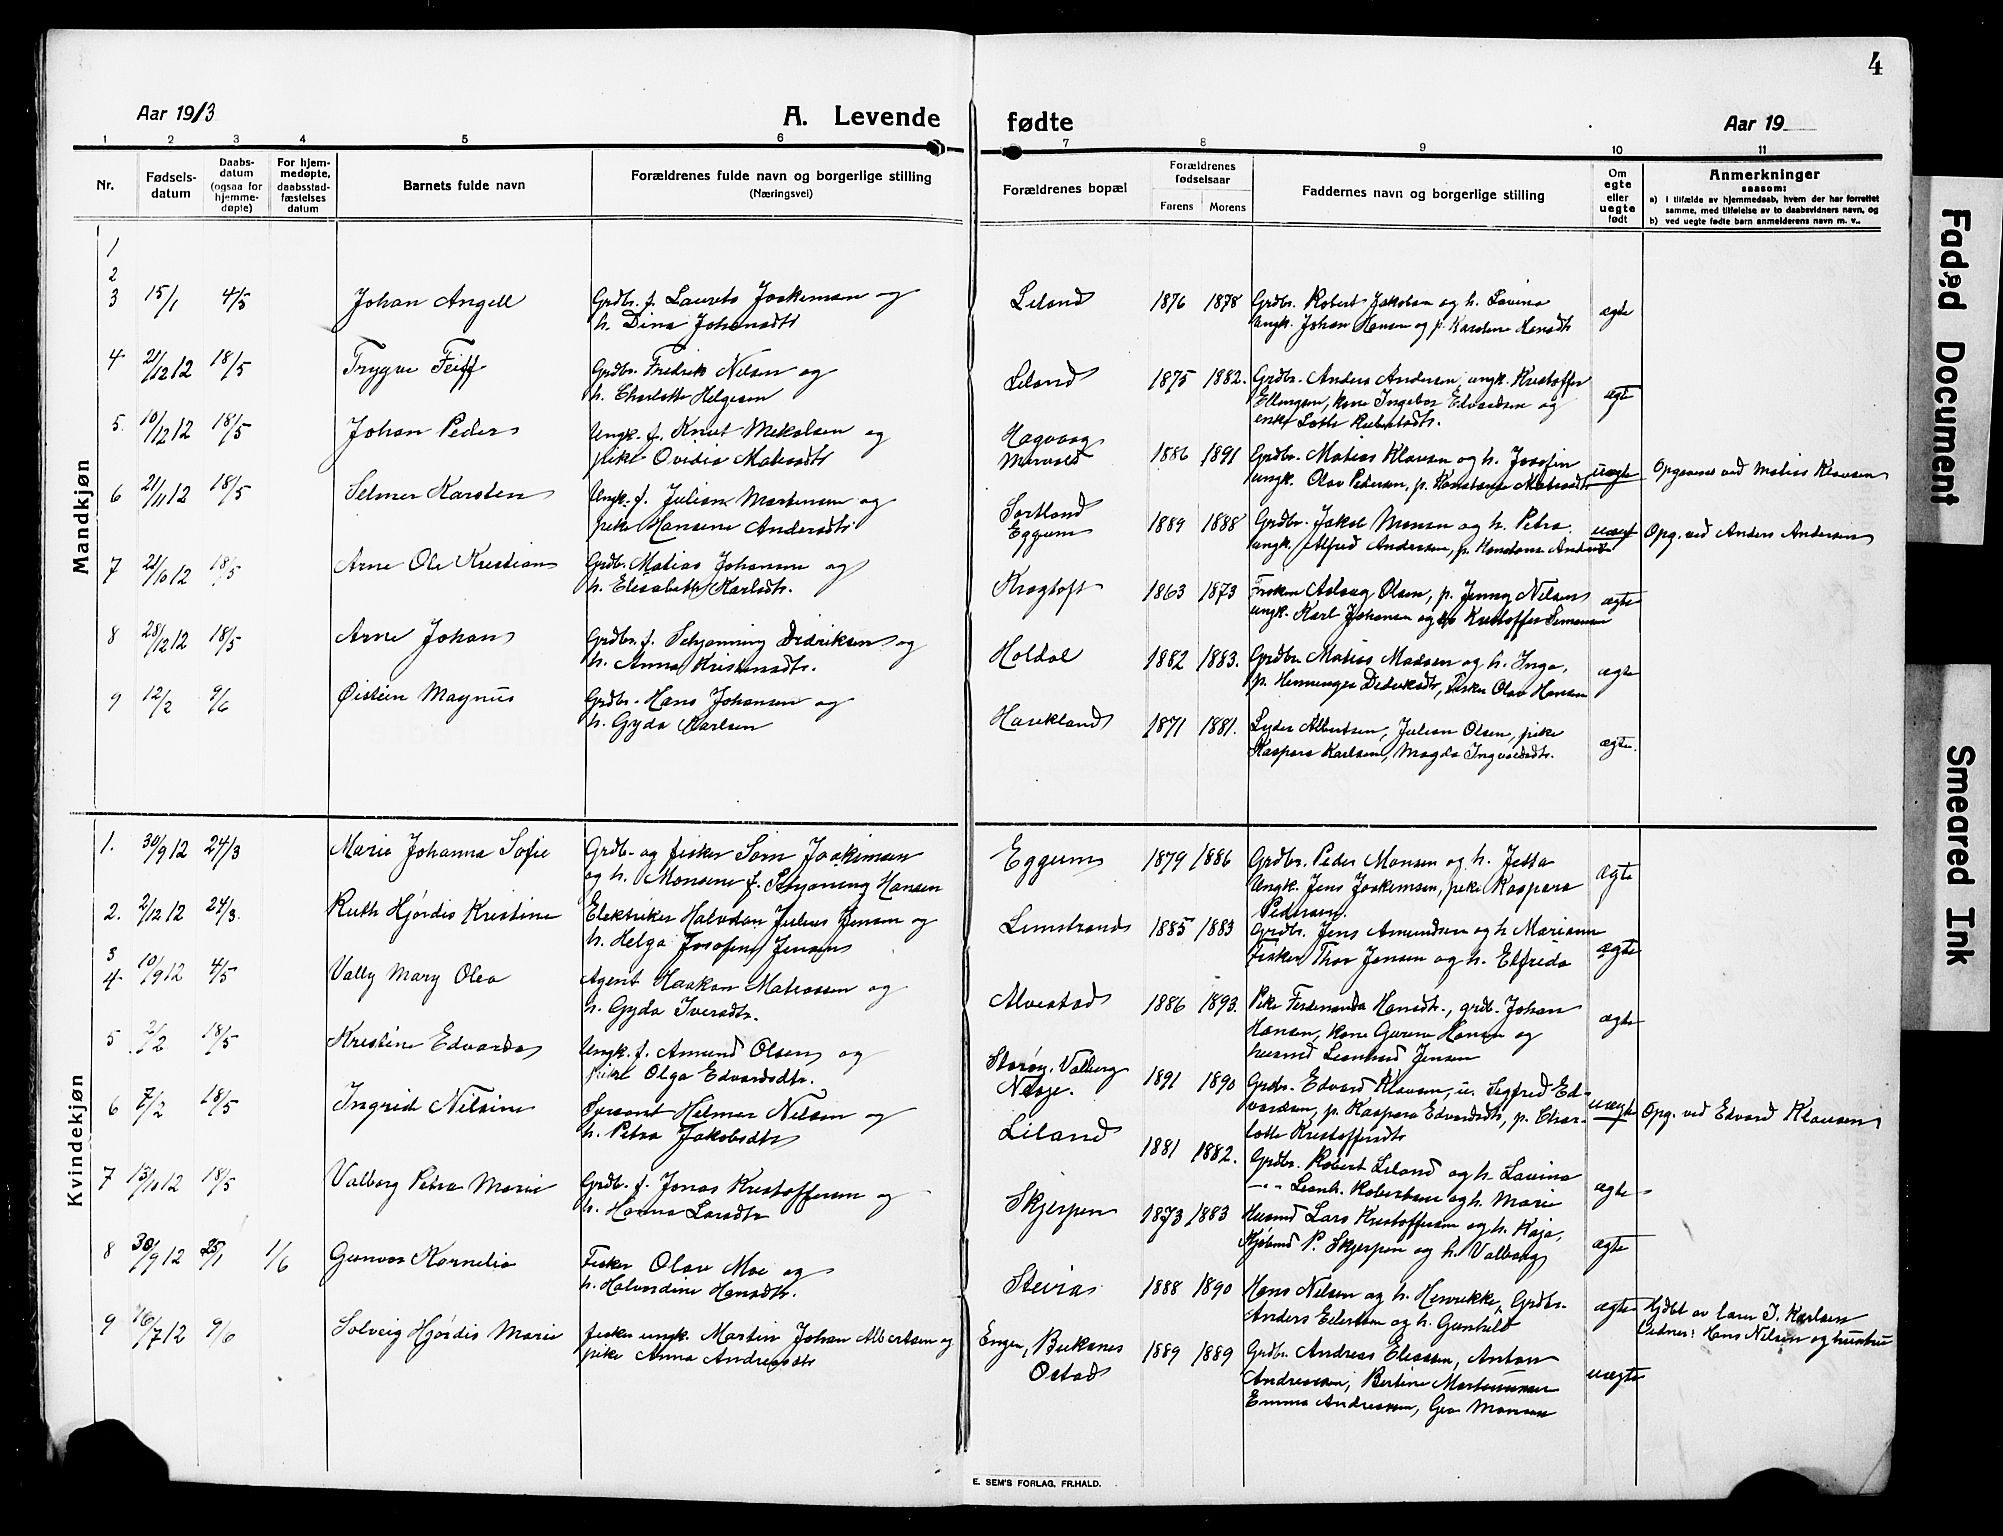 4
Aar 1913
A. Levende
fødte
Aar 19
1 2 3 4 5 6 7 8 9 10 11
Nr.
Fødsels-
datum
Daabs-
datum
(ogsaa for
hjemme-
døpte)
For hjem-
medøpte,
daabsstad-
fæstelses
datum
Barnets fulde navn
Forældrenes fulde navn og borgerlige stilling
(Næringsvei)
Forældrenes bopæl
Forældrenes
fødselsaar
Farens Morens
Faddernes navn og borgerlige stilling
Om
egte
eller
uegte
født
Anmerkninger
saasom:
a) I tilfælde av hjemmedaab, hvem der har forrettet
samme, med tilføielse av to daabsvidners navn, og
b) ved uegte fødte barn anmelderens navn m. v..
Mandkjøn
1
2
3 15/1 4/5 Johan Angell Grdbr. f. Laurets Joakimsen og
h. Dina Johansdtr
Leland 1876 1878 Grdbr. Robert Jakobsen og h. Lavina
ungk. Johan Hansen og p. Karstine Hansdtr
ægte
4 21/12 12 18/5 Trygve Feiff Grdbr. Fredrik Nilsen og
h. Charlotte Helgesen
Leland 1875 1882. Grdbr. Anders Andersen, ungk. Kristoffer
Ellingsen, kone Ingebor Edvardsen og
enke Lotte Robertsdtr.
ægte
5. 10/12 12 18/5 Johan Peder Ungk. f. Knut Mekalsen og
pike Ovidia Matisdtr
Hagvaag
Mervold
1886 1891 Grdbr. Matias Klausen og h. Josefin
ungk. Olav Pedersen, p. Konstanse Matisdtr
uægte Opgaves ved Matias Klausen
6 21/11 12 18/5 Selmer Karsten Ungk. f. Julian Mortensen og
pike Hansine Andersdtr
Sortland
Eggum
1889 1888 Grdbr. Jakob Monsen og h. Petra
ungk. Alfred Andersen, p. Konstanse Andersen
uægt Opg. ved Anders Andersen
7 21/10 12 18/5 Arne Ole Kristian Grdbr. Matias Johansen og
h. Elisabeth Karlsdtr.
Kragtoft 1863 1873 Frøken Aslaug Olsen, p. Jenny Nilsen
ungk. Karl Johansen og Kristoffer Simonsen
ægte
8 28/12 12 18/5 Arne Johan Grdbr. f. Schjønning Didriksen og
h. Anna Kristensdtr.
Holdal 1882 1883. Grdbr. Matias Madsen og h. Inga,
p. Henninge Dideriksdtr, Fisker Olav Hansen
ægte
9 12/2 9/6 Øistein Magnus Grdbr. Hans Johansen og
h. Gyda Karlsen
Haukland 1871 1881. Lyder Albertsen, Julian Olsen, pike
Kaspara Karlsen, Magda Ingvaldsdtr.
ægte.
Kvindekjøn
1. 30/9 12 24/3 Marie Johanna Sofie Grdb. og fisker Sørn Joakimsen
og h. Monsine f. Schjøning Hansen
Eggum 1879 1886 Grdbr. Peder Monsen og h. Jetta
Ungk. Jens Joakimsen, pike Kaspara
Pedersen.
ægte
2. 2/12 12 24/3. Ruth Hjørdis Kristine Elektriker Halvdan Julius Jensen og
h. Helga Josefine Jensen
Limstrand 1885 1883 Grdbr. Jens Amundsen og h Mariann
Fisker Thor Jensen og h. Elfrida
ægte
3
4. 10/9 12 4/5 Vally Mary Olea Agent Haakon Matiassen og
h. Gyda Iversdtr.
Alvestad 1886 1893. Pike Ferdinanda Hansdtr., grdb. Johan
Hansen, kone Gurine Hansen og
husmd Leonhard Jensen
ægte
5 2/2 18/5 Kristine Edvarda Ungk. f. Amund Olsen og
pike Olga Edvardsdtr.
Storøy, Valberg
Nesje.
1891 1890 Grdbr. Edvard Klausen, u. Sigfred Ed-
vardsen, p. Kaspara Edvardsdtr, p. Char-
lotte Kristoffersdtr
uægte Opg. ved Edvard Klausen
6 7/2 18/5 Ingrid Nilsine Sersant Helmer Nilsen og
h. Petra Jakobsdtr
Leland 1881 1882. Grdbr. Robert Leland og h. Lavina
- " - Leonh. Robertsen og h. Marie
ægte
7 13/11 12 18/5 Valborg Petra Marie Grdb. f. Jonas Kristoffersen og
h. Hanna Larsdtr
Skjerpen 1873 1883 Husmd Lars Kristoffersen og h. Kaja,
Kjøbmd P. Skjerpen og h. Valborg
ægte
8 30/9 12 25/1 1/6 Gunvor Kornelia Fisker Olav Moe og
h. Halvardine Hansdtr.
Steira 1888 1890 Hans Nilsen og h. Henrikke, Grdbr.
Anders Eilertsen og h. Gunhild
ægte Hjdbt av lærer I. Karlsen
Vidner: Hans Nilsen og hustru
9 16/7 12 9/6 Solveig Hjørdis Marie fisker ungk. Martin Johan Albertsen og
pike Anna Andreasdtr
Engen, Buksnes
Ostad
1889 1889 Grdbr. Andreas Eliassen, Anton
Andreassen, Bertine Martinussen
Emma Andreassen, Gea Monsen
uægte
E. SEM'S FORLAG, FR.HALD.
Faded Document
Smeared Ink